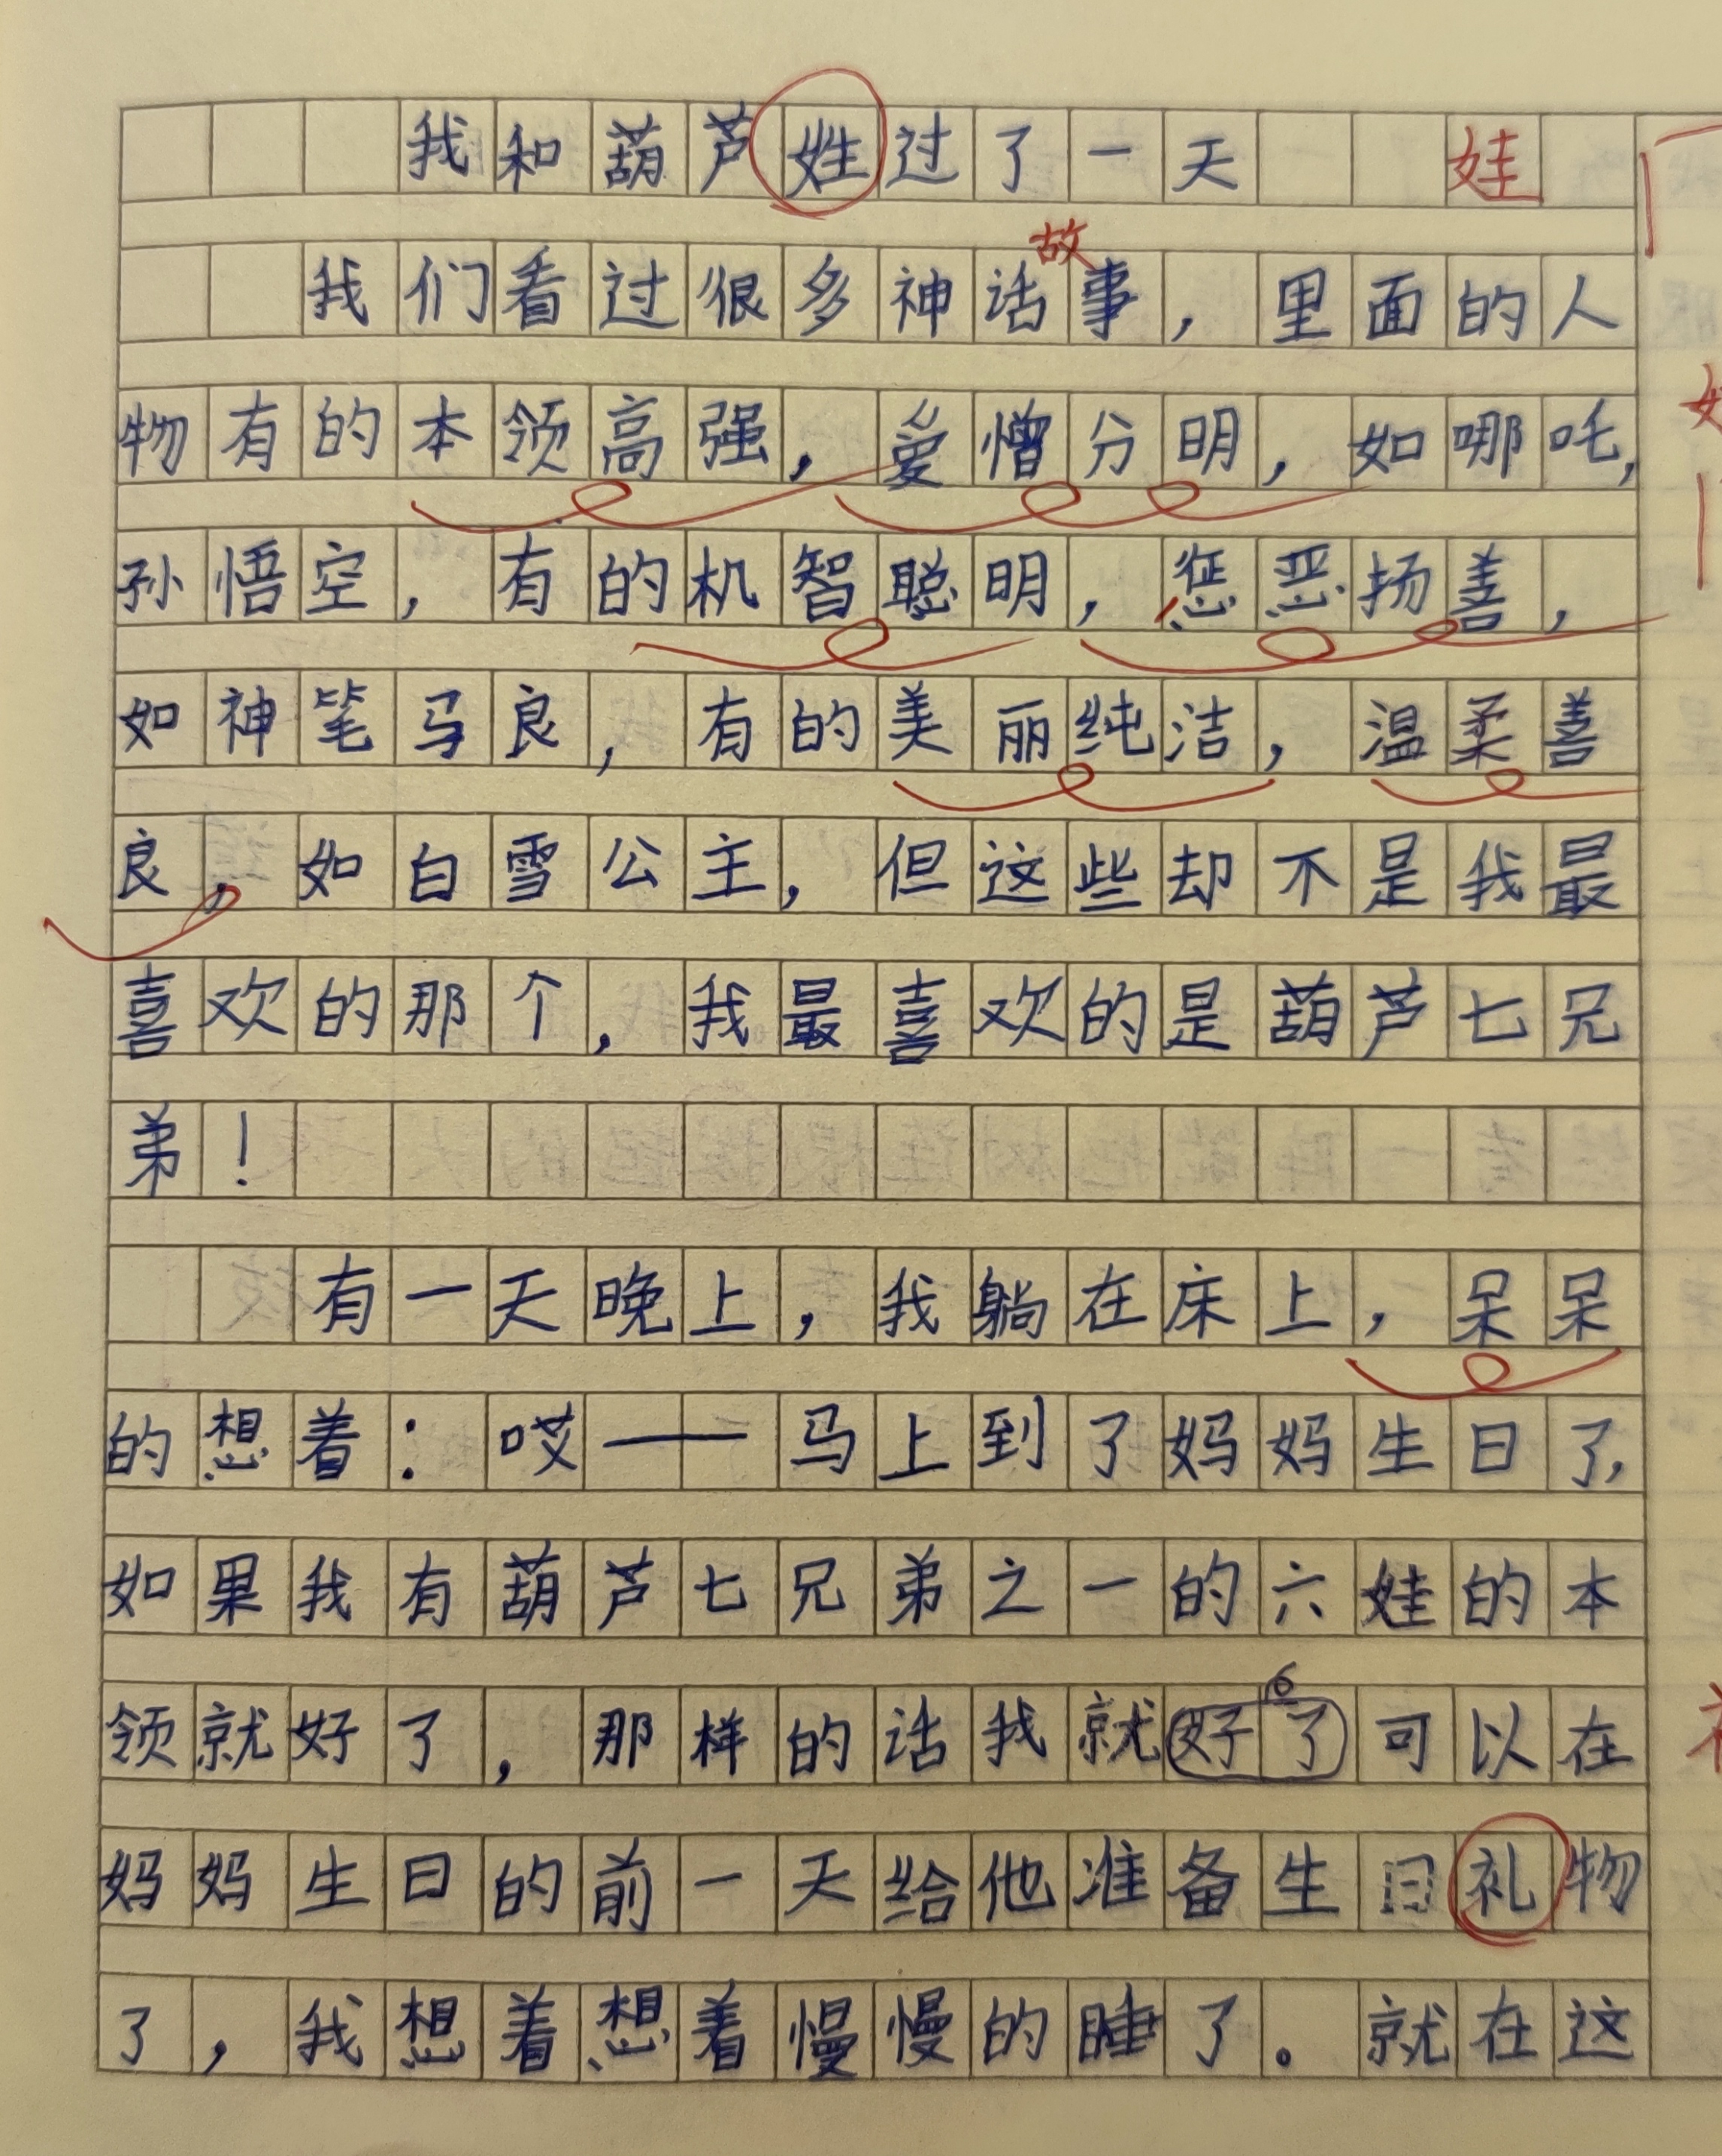 我和葫芦姓过了一天 娃
故
我们看过很多神话事，里面的人
物有的本领高强，爱憎分明，如哪吒，
孙悟空，有的机智聪明，惩恶扬善，
如神笔马良，有的美丽纯洁，温柔善
良，如白雪公主，但这些却不是我最
喜欢的那个，我最喜欢的是葫芦七兄
弟！
有一天晚上，我躺在床上，呆呆
的想着：哎——马上到了妈妈生日了，
如果我有葫芦七兄弟之一的六娃的本
领就好了，那样的话我就好了可以在
妈妈生日的前一天给他准备生日礼物
了，我想着想着慢慢的睡了。就在这